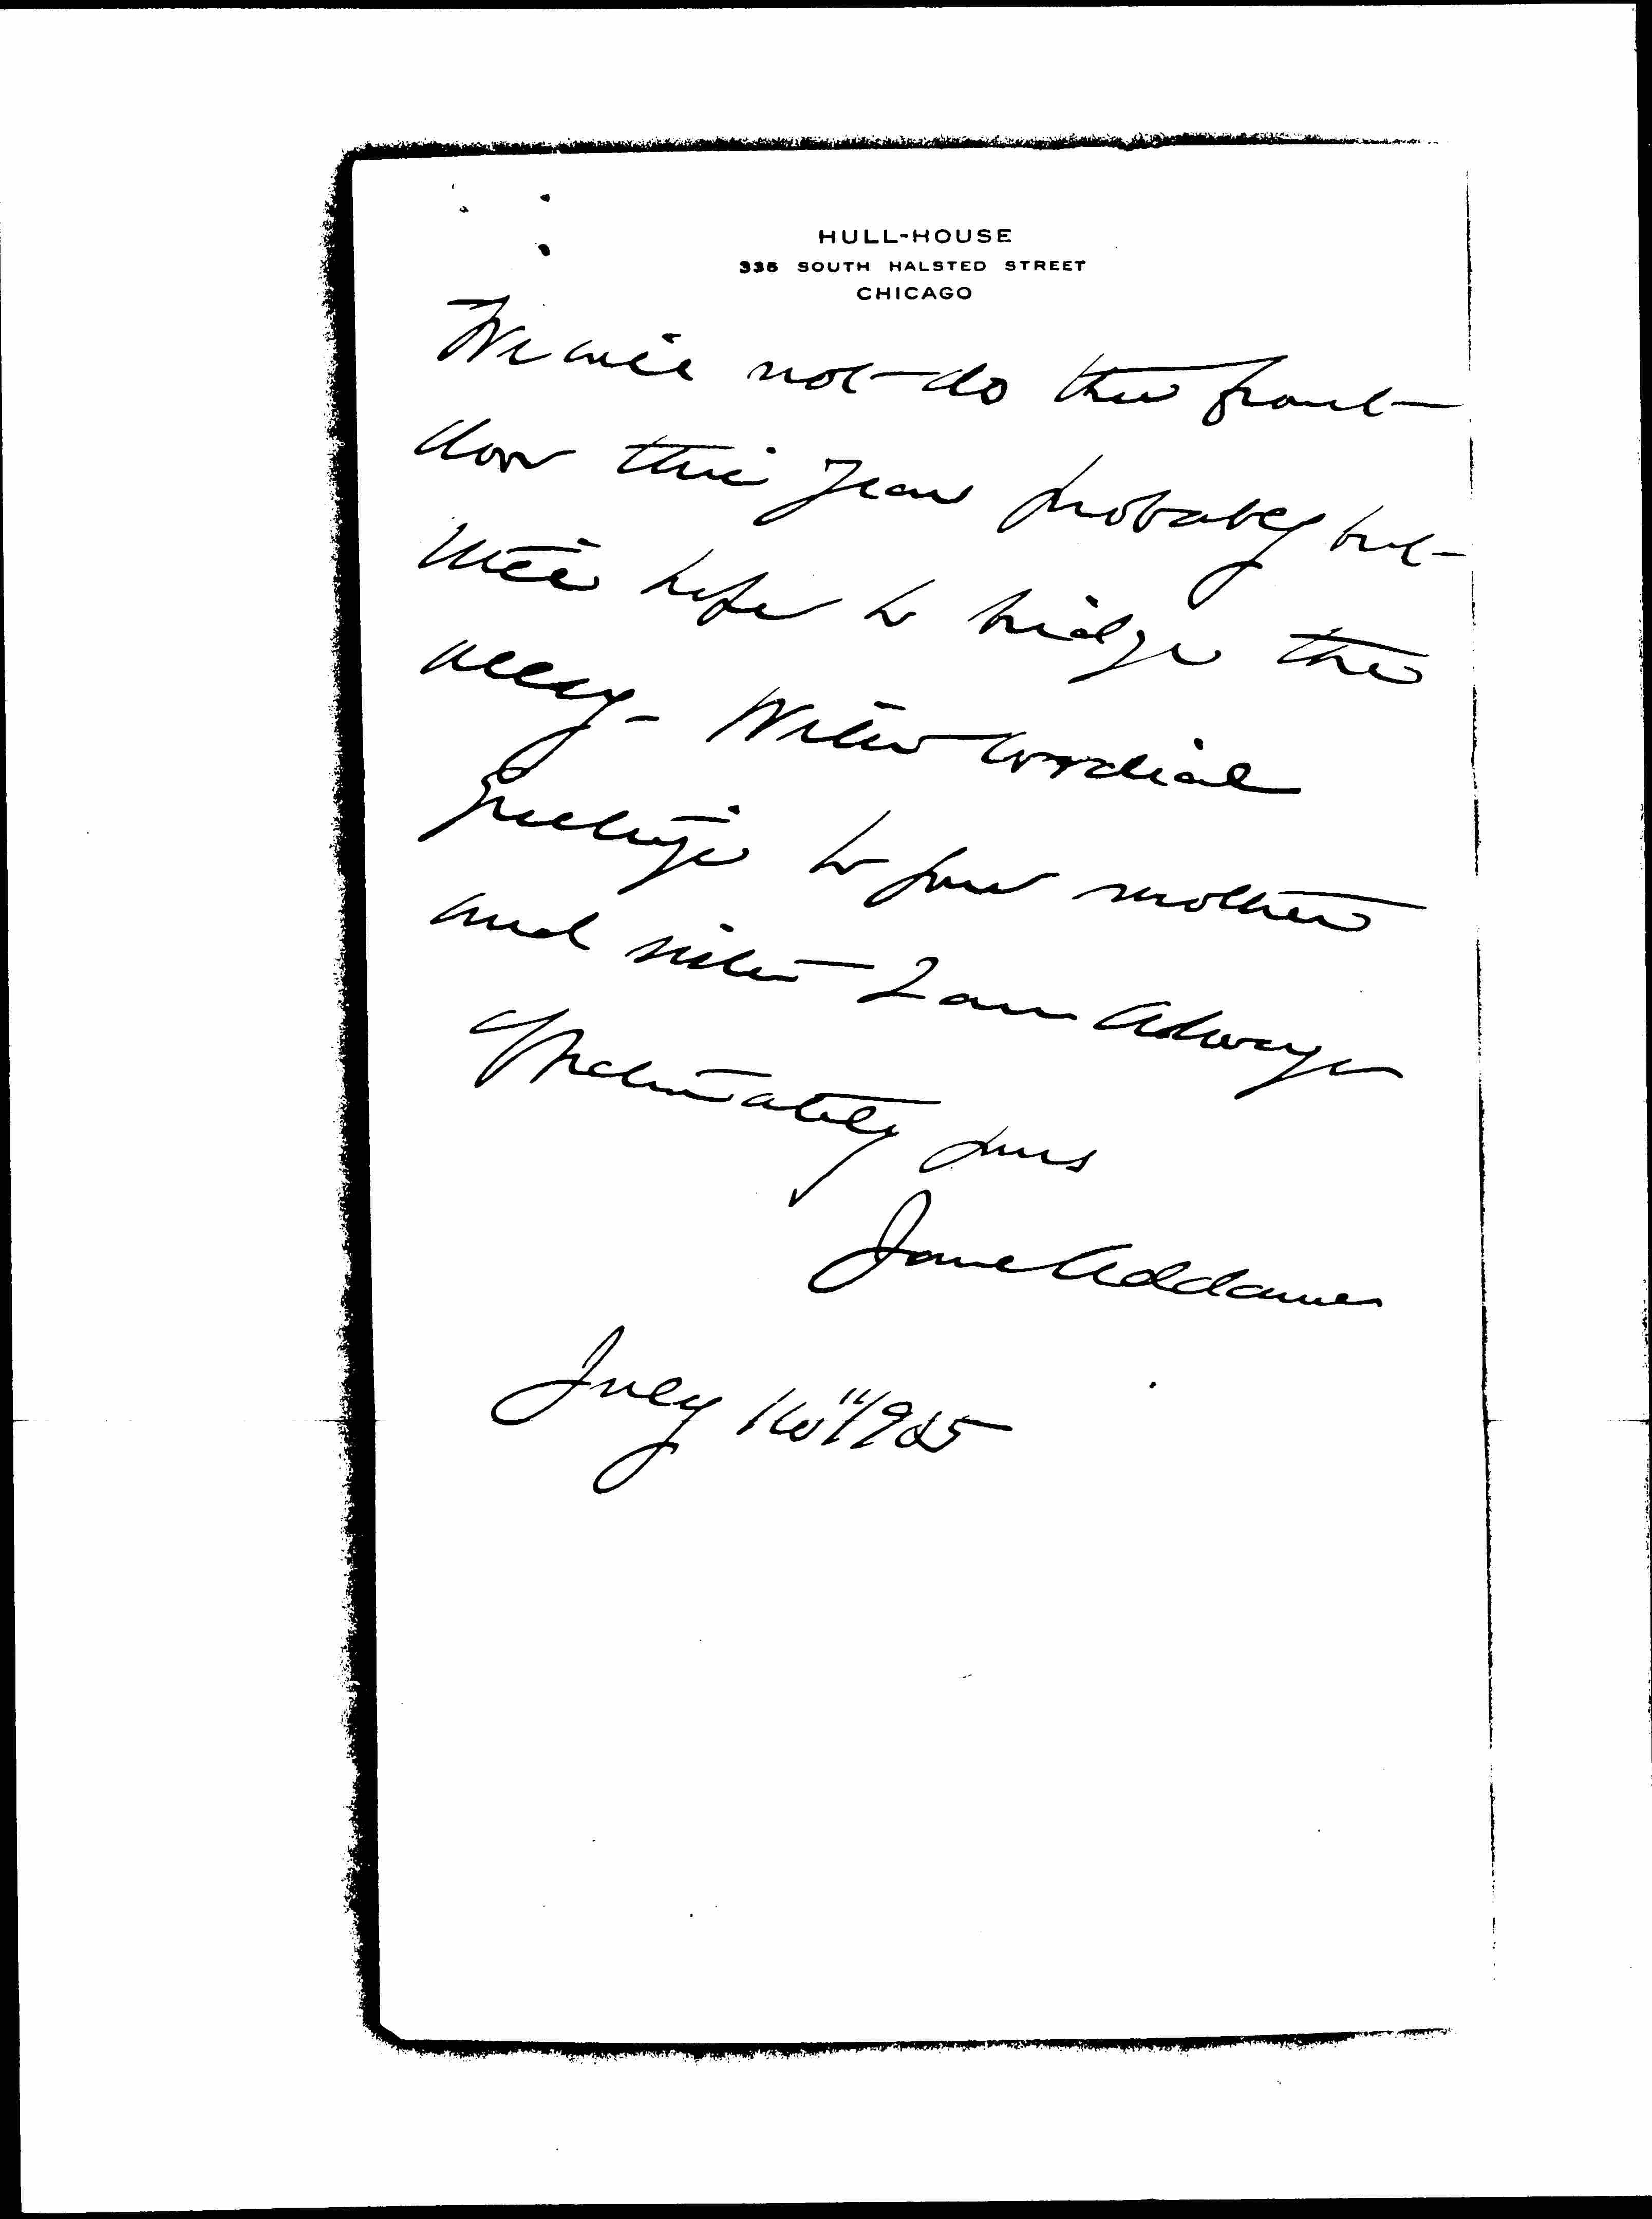 HULL-HOUSE
335 SOUTH HALSTED STREET
CHICAGO
We will not do the front
door this year probably but
will hope to bridge the
alley - With cordial
greetings to your mother
and sister I am always
affectionately yours
Jane Addams
July 16" 1905